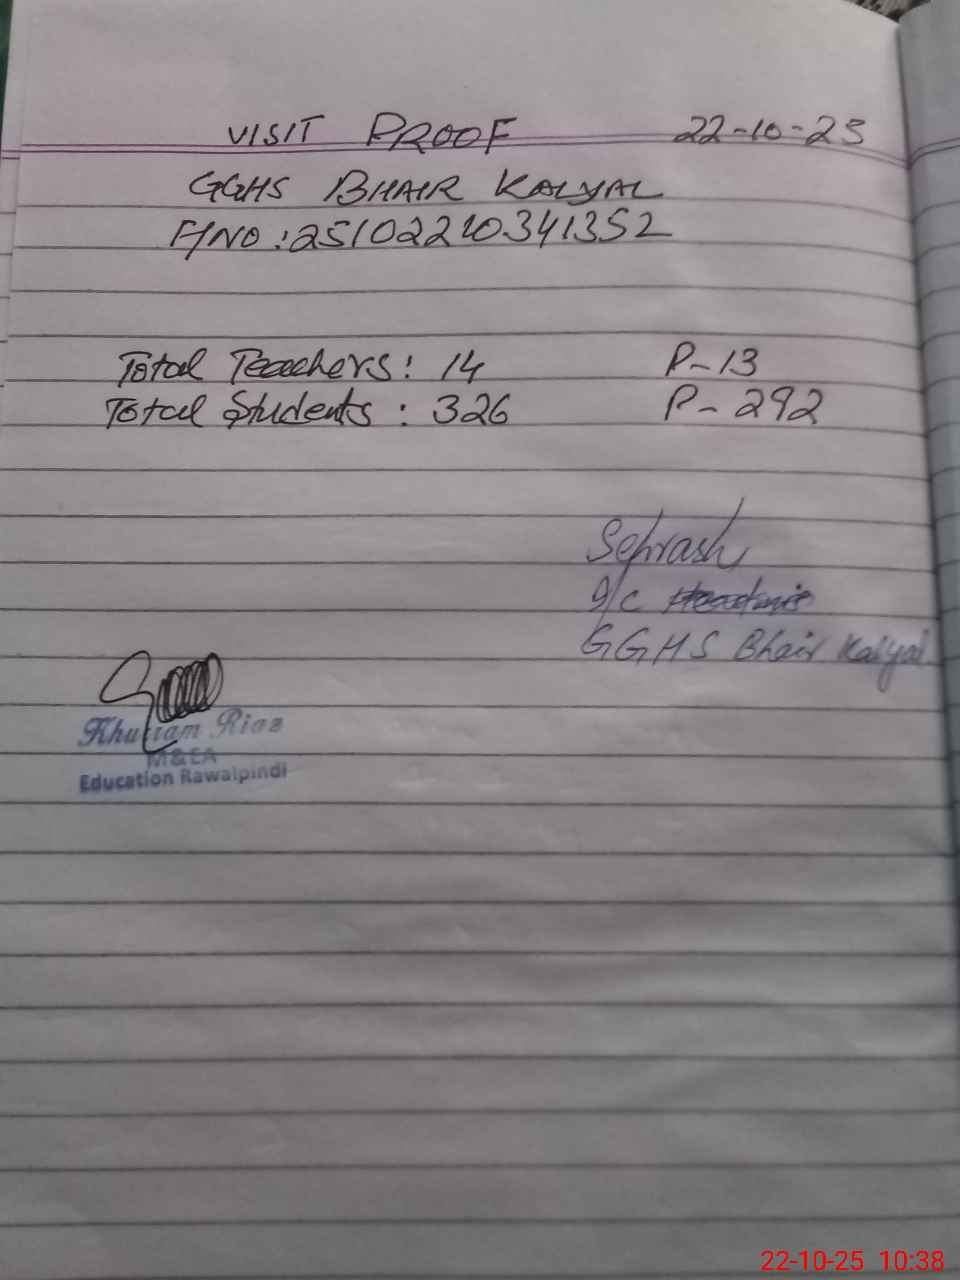 VISIT PROOF 22-10-25
GGHS BHAIR KALYAL
F/NO : 25102210341352
Total Teachers : 14 P-13
Total Students : 326 P-292
Sehrash
I/C
GGHS Bhair Kalyal
Khurram Riaz
M&EA
Education Rawalpindi
22-10-25 10:38